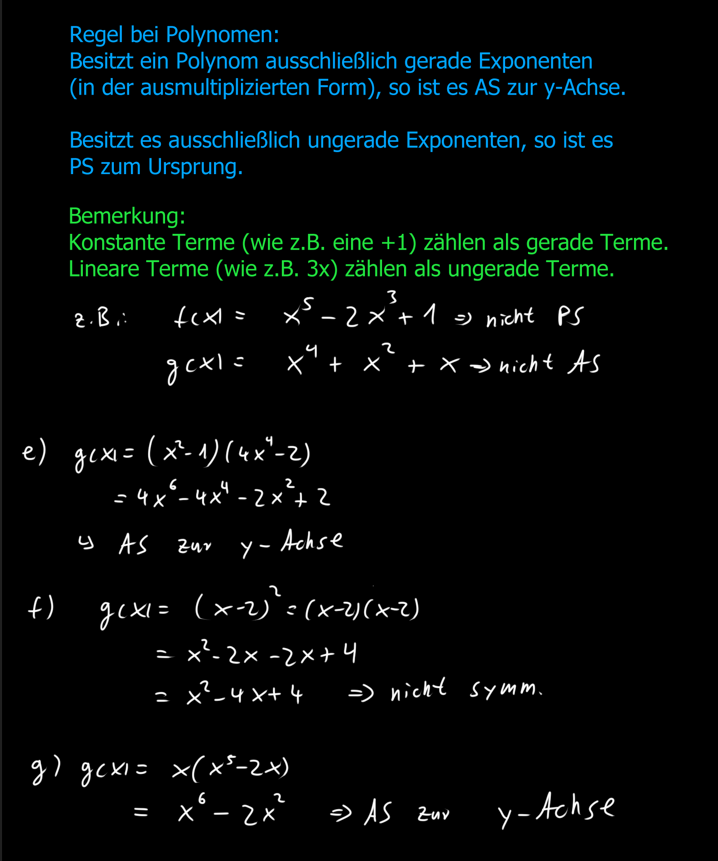 Regel bei Polynomen:
Besitzt ein Polynom ausschließlich gerade Exponenten
(in der ausmultiplizierten Form), so ist es AS zur y-Achse.
Besitzt es ausschließlich ungerade Exponenten, so ist es
PS zum Ursprung.
Bemerkung:
Konstante Terme (wie z.B. eine +1) zählen als gerade Terme.
Lineare Terme (wie z.B. 3x) zählen als ungerade Terme.
z.B.: f(x) = x⁵ - 2x³ + 1 ⇒ nicht PS
g(x) = x⁴ + x² + x ⇒ nicht AS
e) g(x) = (x²-1)(4x⁴-2)
= 4x⁶ - 4x⁴ - 2x² + 2
↳ AS zur y-Achse
f) g(x) = (x-2)² = (x-2)(x-2)
= x² - 2x - 2x + 4
= x² - 4x + 4 ⇒ nicht symm.
g) g(x) = x(x⁵-2x)
= x⁶ - 2x² ⇒ AS zur y-Achse